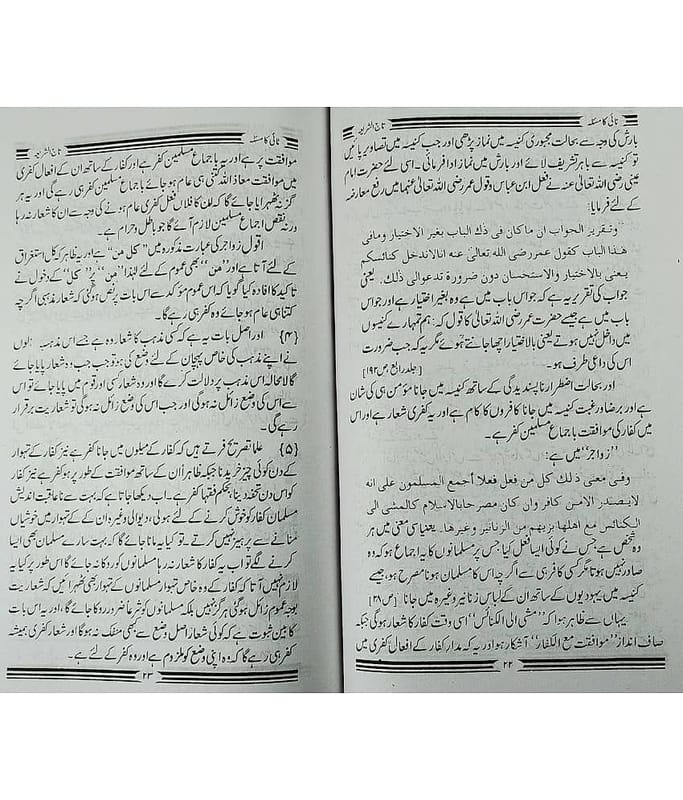 ٹائی کا مسئلہ
تاج الشریعہ
بارش کی وجہ سے بحالت مجبوری کنیسہ میں نماز پڑھی اور جب کنیسہ میں تصاویر پائیں
تو کنیسہ سے باہر تشریف لائے اور بارش میں نماز ادا فرمائی۔ اسی لئے حضرت امام
عینی رضی اللہ تعالیٰ عنہ نے فعل ابن عباس و قول عمر رضی اللہ تعالیٰ عنہما میں رفع معارضہ
کے لئے فرمایا:
وتقریر الجواب ان ماکان فی ذلک الباب بغیر الاختیار ومافی
ھذا الباب کقول عمر رضی اللہ تعالیٰ عنہ انالاندخل کنائسکم
یعنی بالاختیار والاستحسان دون ضرورۃ تدعو الی ذلک۔ یعنی
جواب کی تقریر یہ ہے کہ جو اس باب میں ہے وہ بغیر اختیار ہے اور جو اس
باب میں ہے جیسے حضرت عمر رضی اللہ تعالیٰ کا قول کہ: ہم تمہارے کنیسوں
میں داخل نہیں ہوتے یعنی بالاختیار اچھا جانتے ہوئے مگر یہ کہ جب ضرورت
اس کی داعی طرف ہو۔ [جلد رابع ص۱۹۲]
اور بحالت اضطرار ناپسندیدگی کے ساتھ کنیسہ میں جانا مؤمن ہی کی شان
ہے اور برضا و رغبت کنیسہ میں جانا کافروں کا کام ہے اور یہ کفری شعار ہے اور اس
میں کفار کی موافقت باجماع مسلمین کفر ہے۔
”زواجر“ میں ہے:
وفی معنی ذلک کل من فعل فعلا أجمع المسلمون علی انہ
لایصدر الامن کافر وان کان مصرحا بالاسلام کالمشی الی
الکنائس مع اھلھا بزیھم من الزنانیر وغیرھا۔ یعنی اسی معنی میں ہر
وہ شخص ہے جس نے کوئی ایسا فعل کیا جس پر مسلمانوں کا یہ اجماع ہو کہ وہ
صادر نہیں ہوتا مگر کسی کافر ہی سے اگرچہ اس کا مسلمان ہونا مصرح ہو، جیسے
کنیسہ میں یہودیوں کے ساتھ ان کے لباس زنانیر وغیرہ میں جانا [ص۲۸]
یہاں سے ظاہر ہوا کہ ”مشی الی الکنائس“ اسی وقت کفار کا شعار ہو گی جبکہ
صاف انداز ”موافقت مع الکفار“ آشکار ہو اور یہ کہ مدار کفار کے افعال کفری میں
۲۲
ٹائی کا مسئلہ
تاج الشریعہ
موافقت پر ہے اور یہ باجماع مسلمین کفر ہے اور کفار کے ساتھ ان کے افعال کفری
میں موافقت معاذ اللہ کتنی ہی عام ہو جائے باجماع مسلمین کفر ہی رہے گی اور یہ ہر
گز نہ ٹھہرایا جائے گا کہ ان کا فلاں فعل کفری عام ہونے کی وجہ سے ان کا شعار نہ رہا
ورنہ نقض اجماع مسلمین لازم آئے گا جو باطل و حرام ہے۔
اقول زواجر کی عبارت مذکورہ میں ”کل من“ ہے اور یہ ظاہر کہ کل استغراق
کے لئے آتا ہے اور ”من“ بھی عموم کے لئے لہٰذا ”من“ پر ”کل“ کے دخول نے
تاکید کا افادہ کیا گویا کہ اس عموم مؤکد سے اس بات پر نص ہو گئی کہ شعار مذہبی اگرچہ
کتنا ہی عام ہو جائے وہ کفر ہی رہے گا۔
{۴} اور اصل بات یہ ہے کہ کسی مذہب کا شعار وہ ہے جسے اس مذہب والوں
نے اپنے مذہب کی خاص پہچان کے لئے وضع کی ہو تو جب جب وہ شعار پایا جائے
گا لامحالہ اس مذہب پر دلالت کرے گا اور وہ شعار کسی اور قوم میں پایا جائے تو اس
سے اس کی وضع زائل نہ ہو گی اور جب اس کی وضع زائل نہ ہو گی تو شعاریت برقرار
رہے گی۔
{۵} علما تصریح فرماتے ہیں کہ کفار کے میلوں میں جانا کفر ہے نیز کفار کے تہوار
کے دن کوئی چیز خریدنا جبکہ ظاہراً ان کے ساتھ موافقت کے طور پر ہو کفر ہے نیز کفار
کو اس دن تحفہ دینا، بحکم فقہا کفر ہے۔ اب دیکھا جاتا ہے کہ بہت سے ناعاقبت اندیش
مسلمان کفار کو خوش کرنے کے لئے ہولی، دیوالی وغیرہ ان کے تہوار میں خوشیاں
منانے سے پرہیز نہیں کرتے۔ تو کیا یہ مانا جائے گا کہ بہت سارے مسلمان بھی ایسا
کرنے لگے تو اب یہ کفار کا شعار نہ رہا مسلمانوں کو روکا نہ جائے گا اس طور پر کیا یہ
لازم نہیں آتا کہ کفار کے وہ خاص تہوار مسلمانوں کے تہوار بھی ٹھہرائیں کہ شعاریت
بوجہ عموم زائل ہو گئی ہرگز نہیں بلکہ مسلمانوں کو شرعاً ضرور روکا جائے گا، اور یہ اس بات
کا بین ثبوت ہے کہ کوئی شعار اصل وضع سے بھی منفک نہ ہو گا اور شعار کفری ہمیشہ
کفر ہی رہے گا کہ وہ اپنی وضع کو ملزوم ہے اور وہ کفر کے لئے ہے۔
۲۳